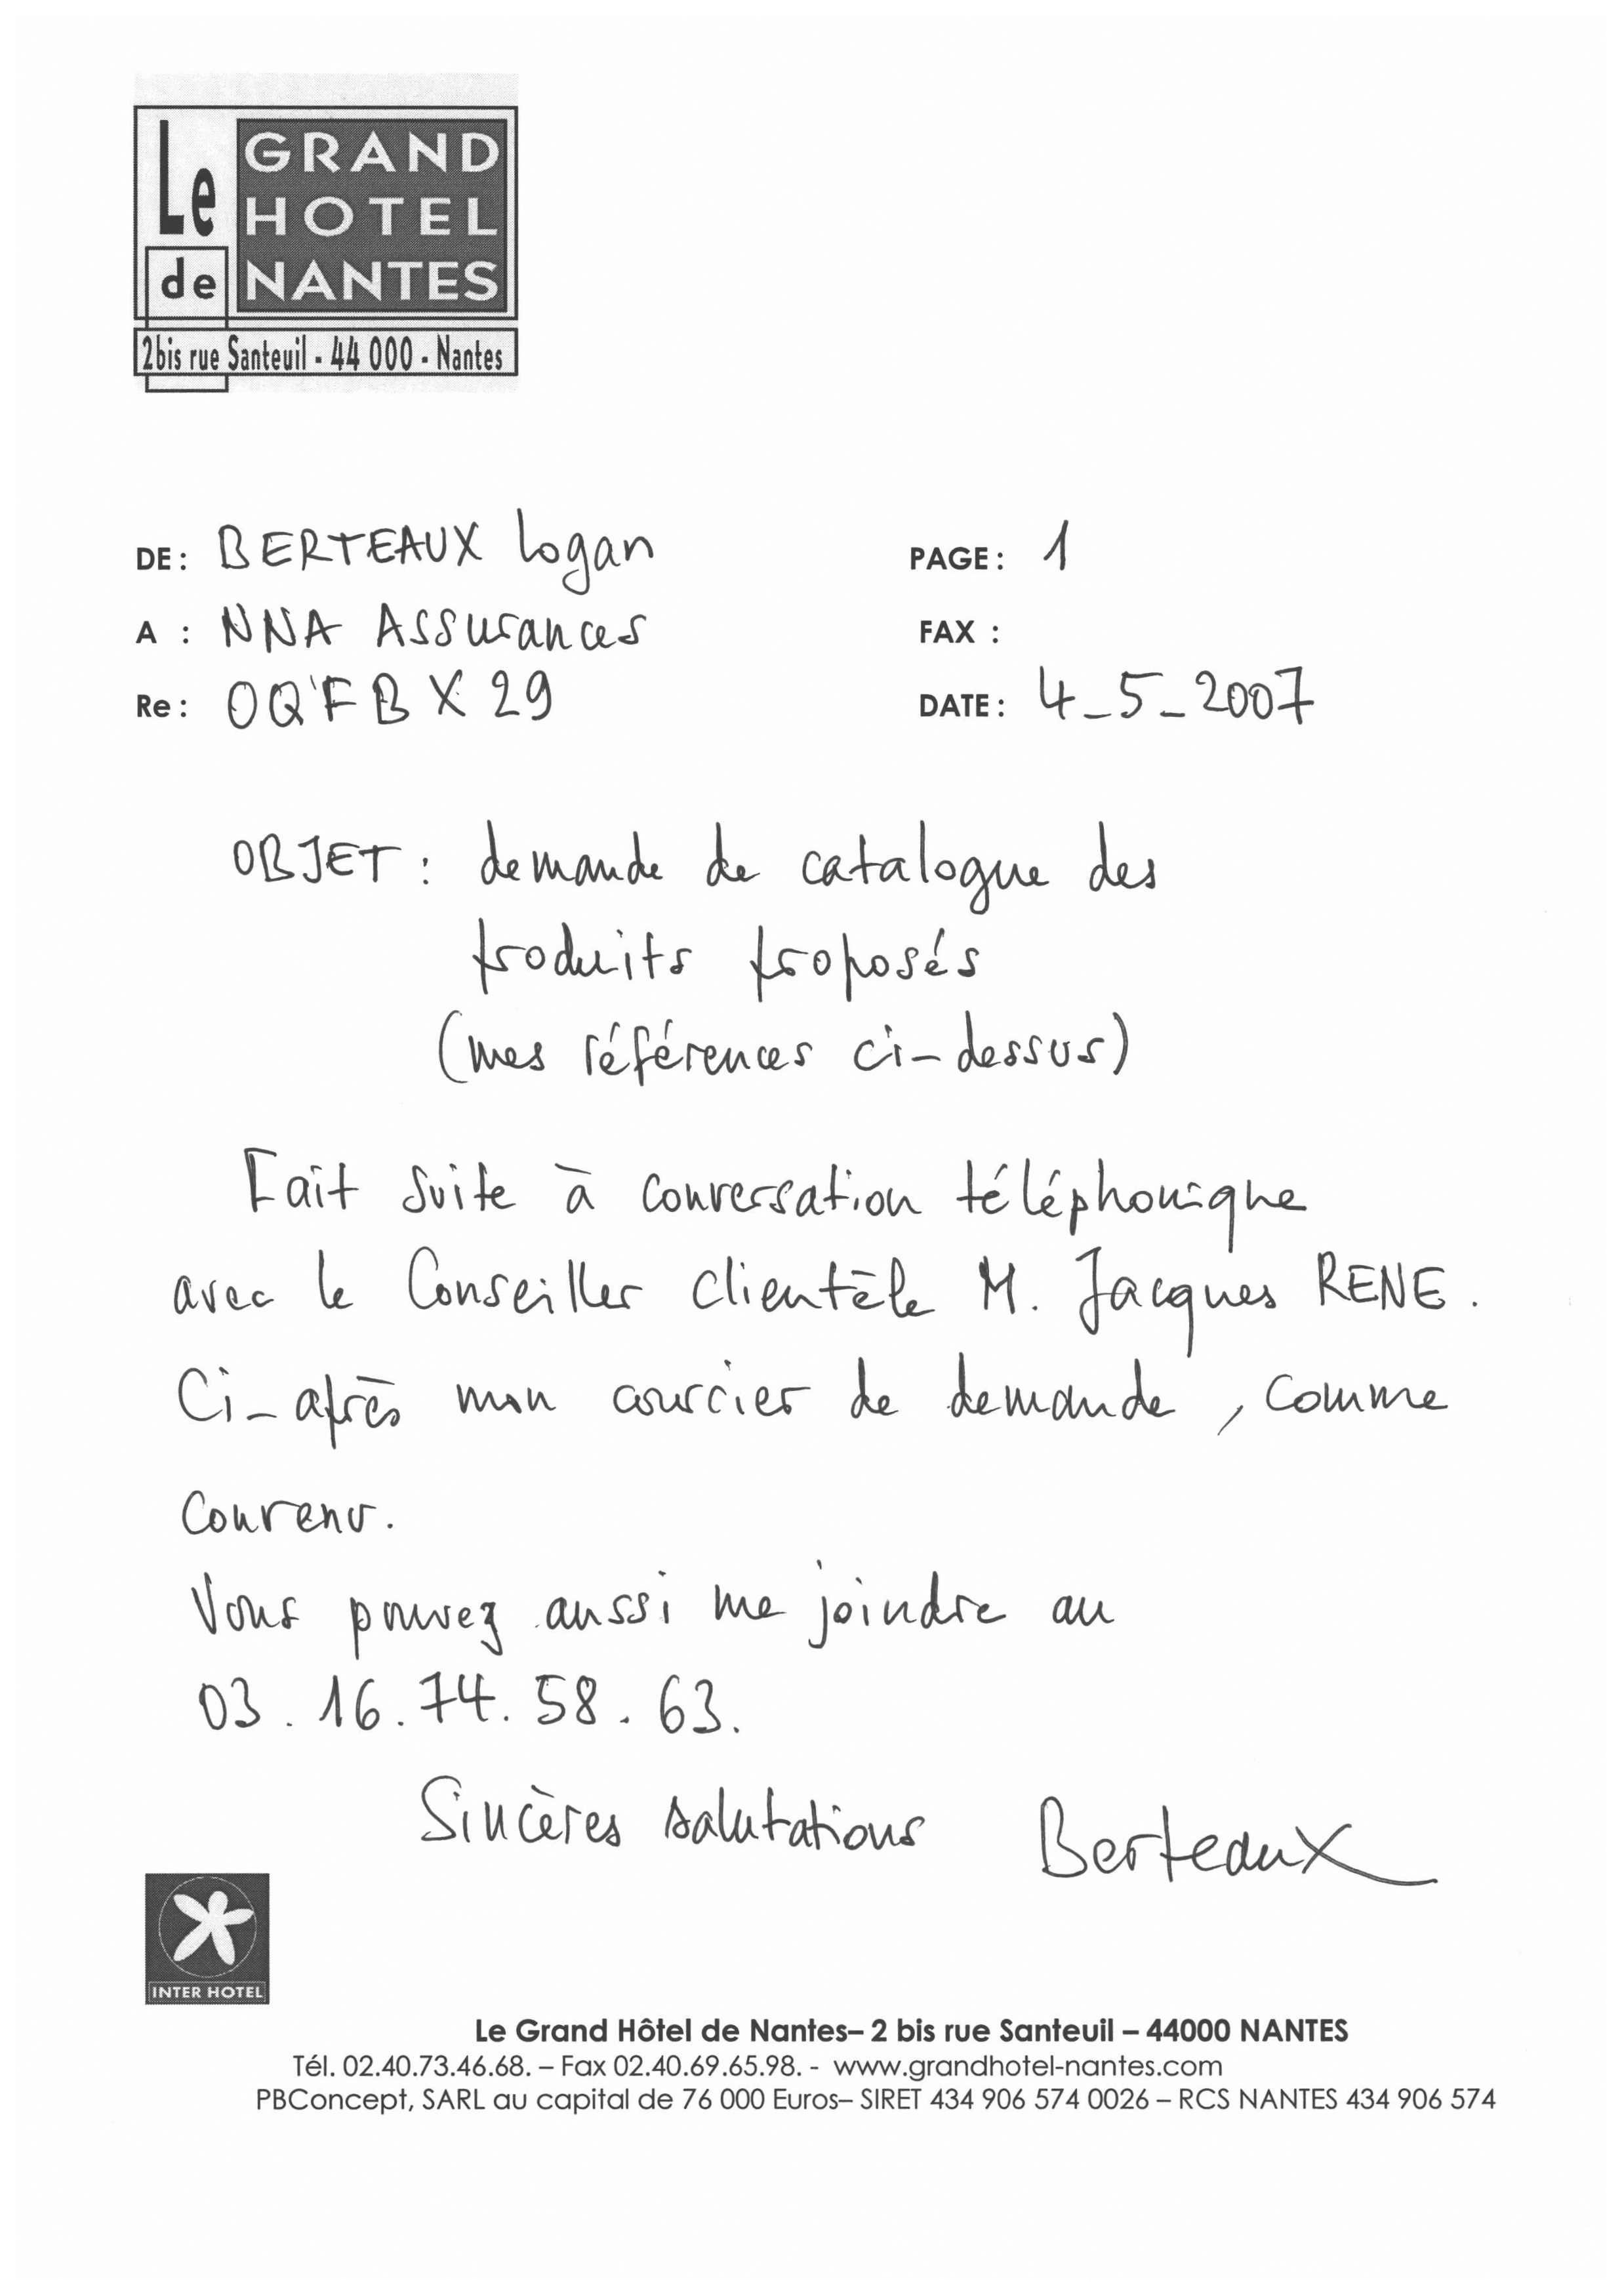 Le GRAND
HOTEL
de NANTES
2bis rue Santeuil - 44 000 - Nantes
DE : BERTEAUX Logan
PAGE : 1
A : NNA Assurances
FAX :
Re : OQFBX29
DATE : 4_5_2007
OBJET : demande de catalogue des
produits proposés
(mes références ci-dessus)
Fait suite à conversation téléphonique
avec le Conseiller clientèle M. Jacques RENE.
Ci-après mon courrier de demande, comme
convenu.
Vous pouvez aussi me joindre au
03.16.74.58.63.
Sincères salutations Berteaux
INTER HOTEL
Le Grand Hôtel de Nantes– 2 bis rue Santeuil – 44000 NANTES
Tél. 02.40.73.46.68. – Fax 02.40.69.65.98. - www.grandhotel-nantes.com
PBConcept, SARL au capital de 76 000 Euros– SIRET 434 906 574 0026 – RCS NANTES 434 906 574